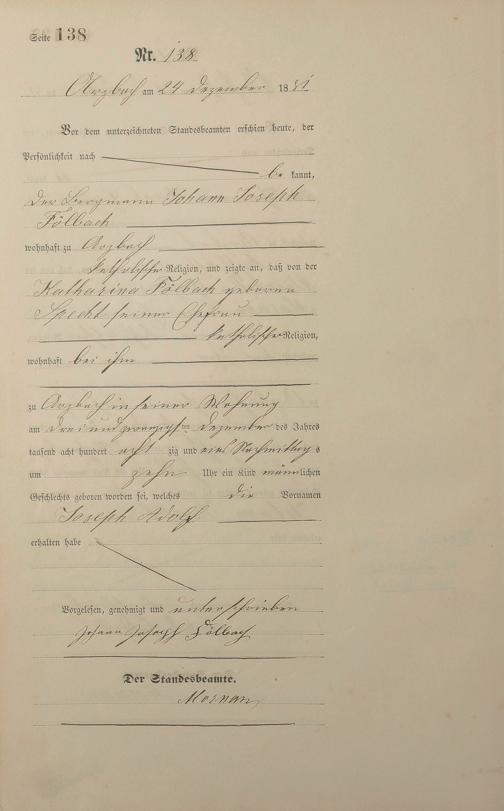 Seite 138
Nr. 138
Arzbach am 24 Dezember 1881
Vor dem unterzeichneten Standesbeamten erschien heute, der
Persönlichkeit nach
be kannt,
der Bergmann Johann Joseph
Fölbach
wohnhaft zu Arzbach
katholischer Religion, und zeigte an, daß von der
Katharina Fölbach geborene
Specht seiner Ehefrau
katholischer Religion,
wohnhaft bei ihm
zu Arzbach in seiner Wohnung
am drei und zwanzigsten Dezember des Jahres
tausend acht hundert acht zig und eins Nachmittags
um zehn Uhr ein Kind männlichen
Geschlechts geboren worden sei, welches die Vornamen
Joseph Adolf
erhalten habe
Vorgelesen, genehmigt und unterschrieben
Johann Joseph Fölbach
Der Standesbeamte.